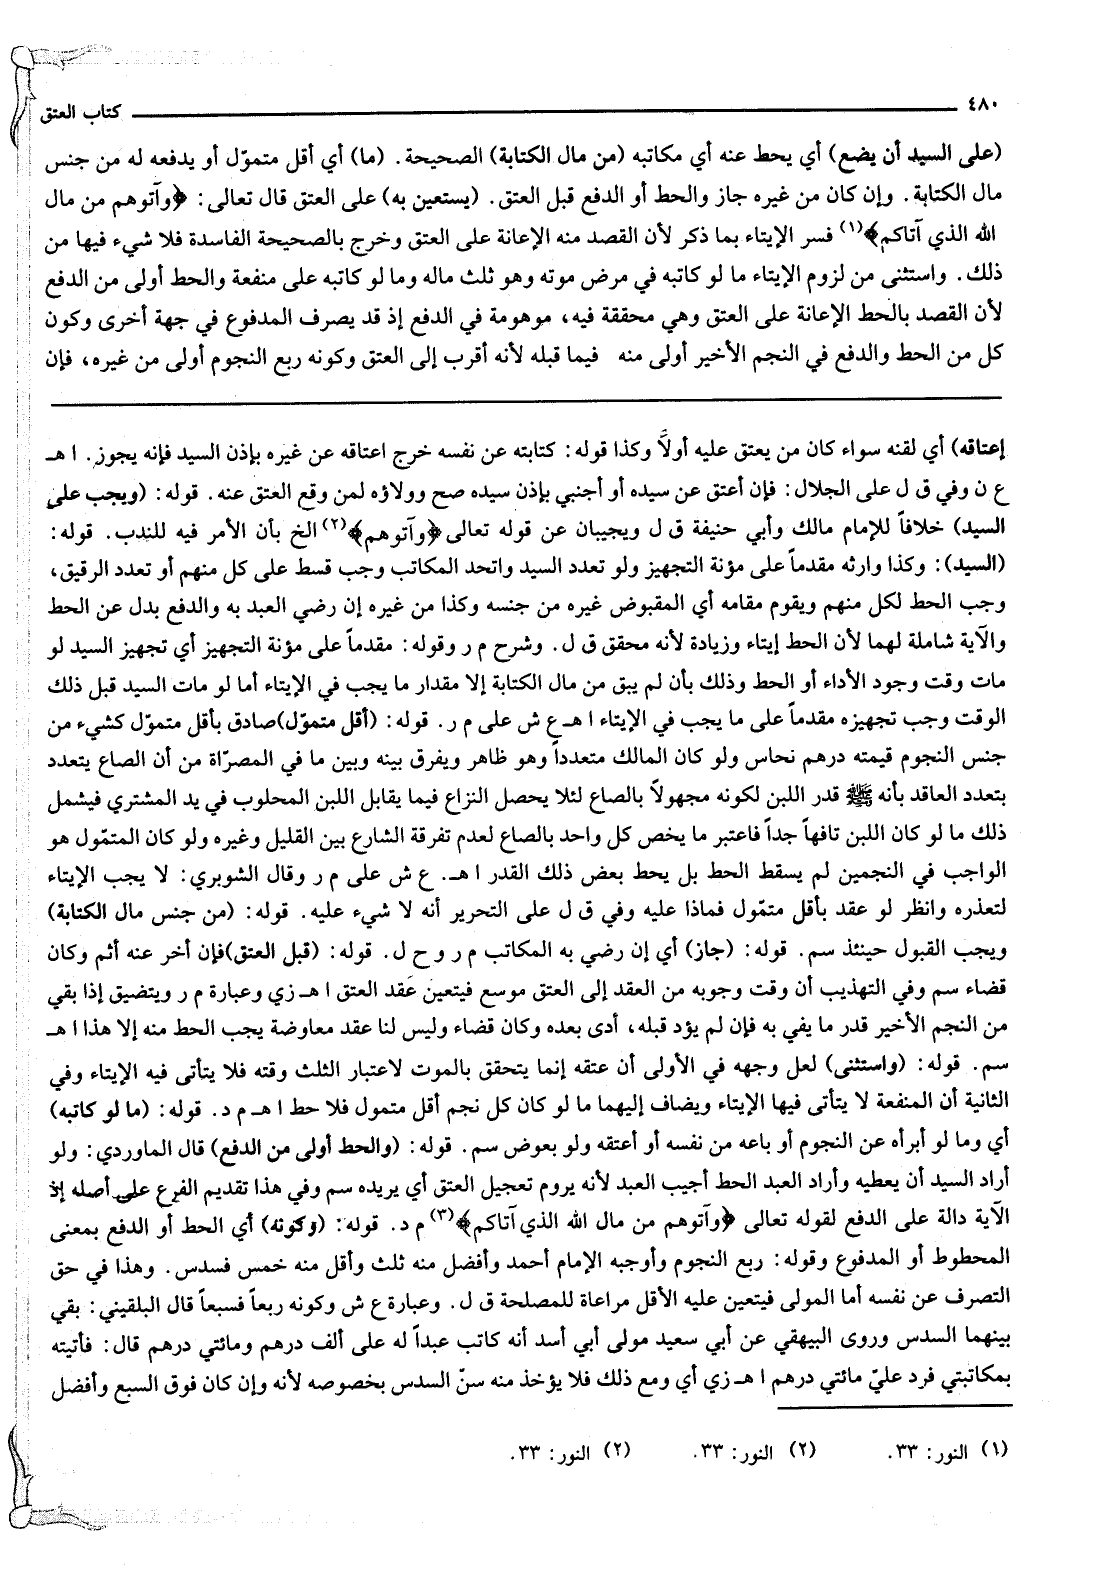 ٤٨٠
كتاب العتق
(على السيد أن يضع) أي يحط عنه أي مكاتبه (من مال الكتابة) الصحيحة. (ما) أي أقل متموّل أو يدفعه له من جنس
مال الكتابة. وإن كان من غيره جاز والحط أو الدفع قبل العتق. (يستعين به) على العتق قال تعالى: ﴿وآتوهم من مال
الله الذي آتاكم﴾(١) فسر الإيتاء بما ذكر لأن القصد منه الإعانة على العتق وخرج بالصحيحة الفاسدة فلا شيء فيها من
ذلك. واستثنى من لزوم الإيتاء ما لو كاتبه في مرض موته وهو ثلث ماله وما لو كاتبه على منفعة والحط أولى من الدفع
لأن القصد بالحط الإعانة على العتق وهي محققة فيه، موهومة في الدفع إذ قد يصرف المدفوع في جهة أخرى وكون
كل من الحط والدفع في النجم الأخير أولى منه فيما قبله لأنه أقرب إلى العتق وكونه ربع النجوم أولى من غيره، فإن
إعتاقه) أي لقنه سواء كان من يعتق عليه أولاً وكذا قوله: كتابته عن نفسه خرج اعتاقه عن غيره بإذن السيد فإنه يجوز. ا هـ
ع ن وفي ق ل على الجلال: فإن أعتق عن سيده أو أجنبي بإذن سيده صح وولاؤه لمن وقع العتق عنه. قوله: (ويجب على
السيد) خلافاً للإمام مالك وأبي حنيفة ق ل ويجيبان عن قوله تعالى ﴿وآتوهم﴾(٢) الخ بأن الأمر فيه للندب. قوله:
(السيد): وكذا وارثه مقدماً على مؤنة التجهيز ولو تعدد السيد واتحد المكاتب وجب قسط على كل منهم أو تعدد الرقيق،
وجب الحط لكل منهم ويقوم مقامه أي المقبوض غيره من جنسه وكذا من غيره إن رضي العبد به والدفع بدل عن الحط
والآية شاملة لهما لأن الحط إيتاء وزيادة لأنه محقق ق ل. وشرح م ر وقوله: مقدماً على مؤنة التجهيز أي تجهيز السيد لو
مات وقت وجود الأداء أو الحط وذلك بأن لم يبق من مال الكتابة إلا مقدار ما يجب في الإيتاء أما لو مات السيد قبل ذلك
الوقت وجب تجهيزه مقدماً على ما يجب في الإيتاء ا هـ ع ش على م ر. قوله: (أقل متموّل)صادق بأقل متموّل كشيء من
جنس النجوم قيمته درهم نحاس ولو كان المالك متعدداً وهو ظاهر ويفرق بينه وبين ما في المصرّاة من أن الصاع يتعدد
بتعدد العاقد بأنه ﷺ قدر اللبن لكونه مجهولاً بالصاع لئلا يحصل النزاع فيما يقابل اللبن المحلوب في يد المشتري فيشمل
ذلك ما لو كان اللبن تافهاً جداً فاعتبر ما يخص كل واحد بالصاع لعدم تفرقة الشارع بين القليل وغيره ولو كان المتمّول هو
الواجب في النجمين لم يسقط الحط بل يحط بعض ذلك القدر ا هـ. ع ش على م ر وقال الشوبري: لا يجب الإيتاء
لتعذره وانظر لو عقد بأقل متمّول فماذا عليه وفي ق ل على التحرير أنه لا شيء عليه. قوله: (من جنس مال الكتابة)
ويجب القبول حينئذ سم. قوله: (جاز) أي إن رضي به المكاتب م ر و ح ل. قوله: (قبل العتق)فإن أخر عنه أثم وكان
قضاء سم وفي التهذيب أن وقت وجوبه من العقد إلى العتق موسع فيتعين عقد العتق ا هـ زي وعبارة م ر ويتضيق إذا بقي
من النجم الأخير قدر ما يفي به فإن لم يؤد قبله، أدى بعده وكان قضاء وليس لنا عقد معاوضة يجب الحط منه إلا هذا ا هـ
سم. قوله: (واستثنى) لعل وجهه في الأولى أن عتقه إنما يتحقق بالموت لاعتبار الثلث وقته فلا يتأتى فيه الإيتاء وفي
الثانية أن المنفعة لا يتأتى فيها الإيتاء ويضاف إليهما ما لو كان كل نجم أقل متمول فلا حط ا هـ م د. قوله: (ما لو كاتبه)
أي وما لو أبرأه عن النجوم أو باعه من نفسه أو أعتقه ولو بعوض سم. قوله: (والحط أولى من الدفع) قال الماوردي: ولو
أراد السيد أن يعطيه وأراد العبد الحط أجيب العبد لأنه يروم تعجيل العتق أي يريده سم وفي هذا تقديم الفرع على أصله إذ
الآية دالة على الدفع لقوله تعالى ﴿وآتوهم من مال الله الذي آتاكم﴾(٣) م د. قوله: (وكونه) أي الحط أو الدفع بمعنى
المحطوط أو المدفوع وقوله: ربع النجوم وأوجبه الإمام أحمد وأفضل منه ثلث وأقل منه خمس فسدس. وهذا في حق
التصرف عن نفسه أما المولى فيتعين عليه الأقل مراعاة للمصلحة ق ل. وعبارة ع ش وكونه ربعاً فسبعاً قال البلقيني: بقي
بينهما السدس وروى البيهقي عن أبي سعيد مولى أبي أسد أنه كاتب عبداً له على ألف درهم ومائتي درهم قال: فأتيته
بمكاتبتي فرد عليّ مائتي درهم ا هـ زي أي ومع ذلك فلا يؤخذ منه سنّ السدس بخصوصه لأنه وإن كان فوق السبع وأفضل
(١) النور: ٣٣. (٢) النور: ٣٣. (٢) النور: ٣٣.